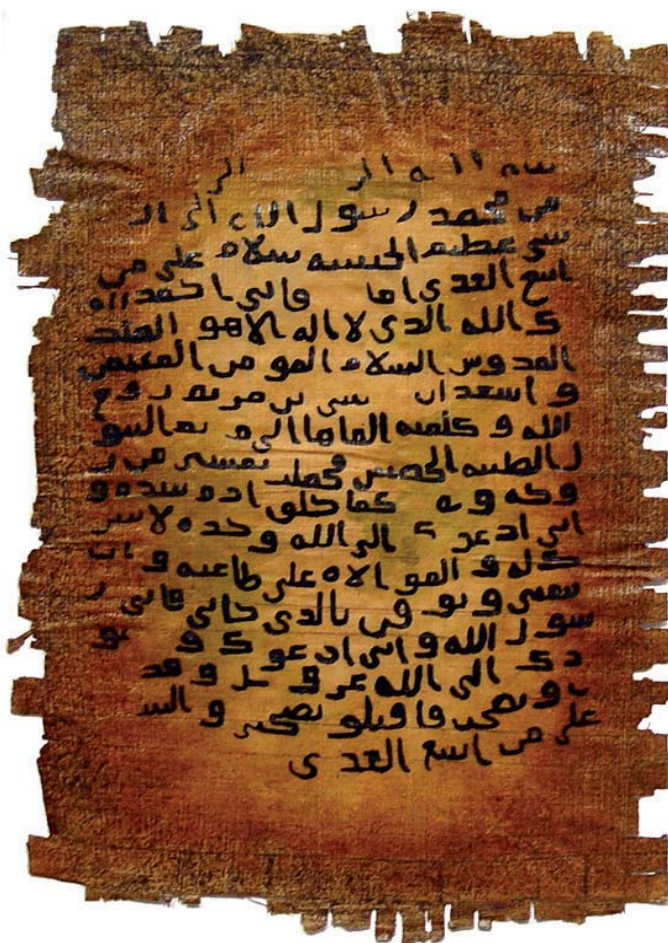 بسم الله الر الر
من محمد رسول الله الى الن
شي عظيم الحبشة سلام على من
اتبع الهدى اما فاني احمد اليك
الله الذي لا اله الا هو الملك
القدوس السلام المومن المهيمن
و اشهد ان عيسى بن مريم روح
الله و كلمته القاها الى مريم البتو
ل الطيبة الحصينة فحملت بعيسى من ر
وحه و كما خلق ادم بيده و
اني ادعوك الى الله وحده لا شر
يك له و الموالاة على طاعته و ان
تتبعني و توقن بالذي جاني فاني ر
سول الله و اني ادعوك و جنو
دك الى الله عز و جل و قد
و نصحت فاقبلو نصيحتي و السلا
على من اتبع الهدى